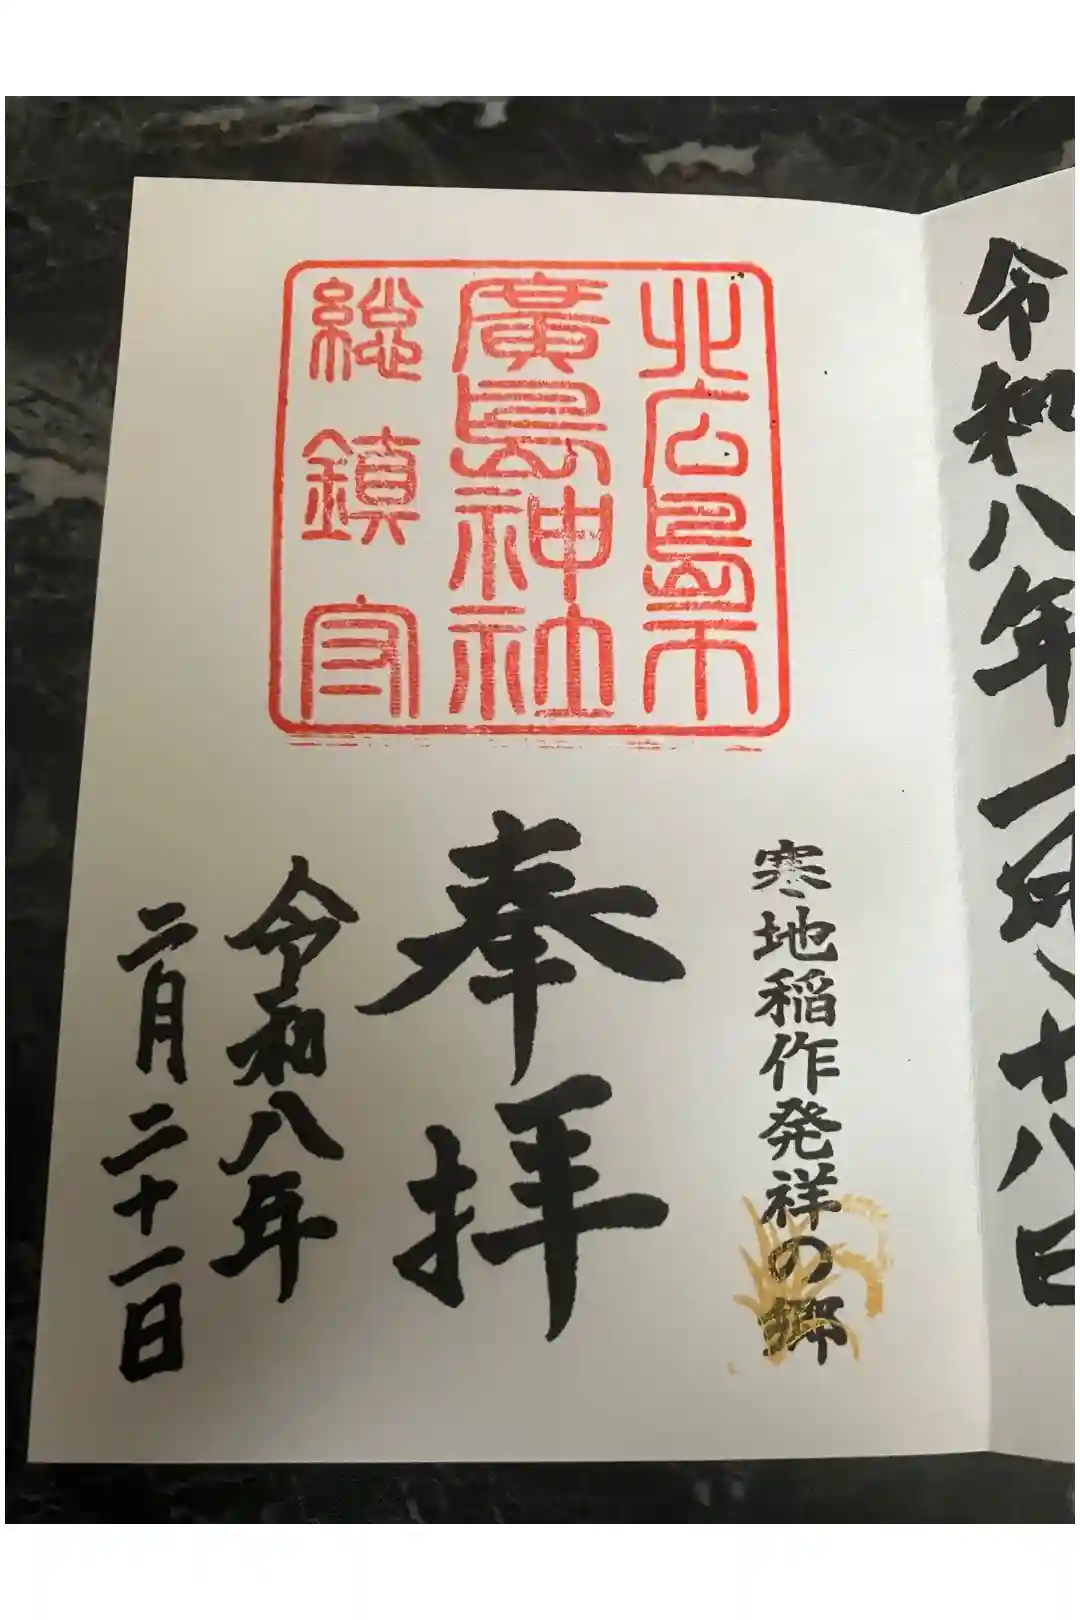 令和八年
十八日
北広島市
廣島神社
総鎮守
寒地稲作発祥の郷
奉拝
令和八年
二月二十一日